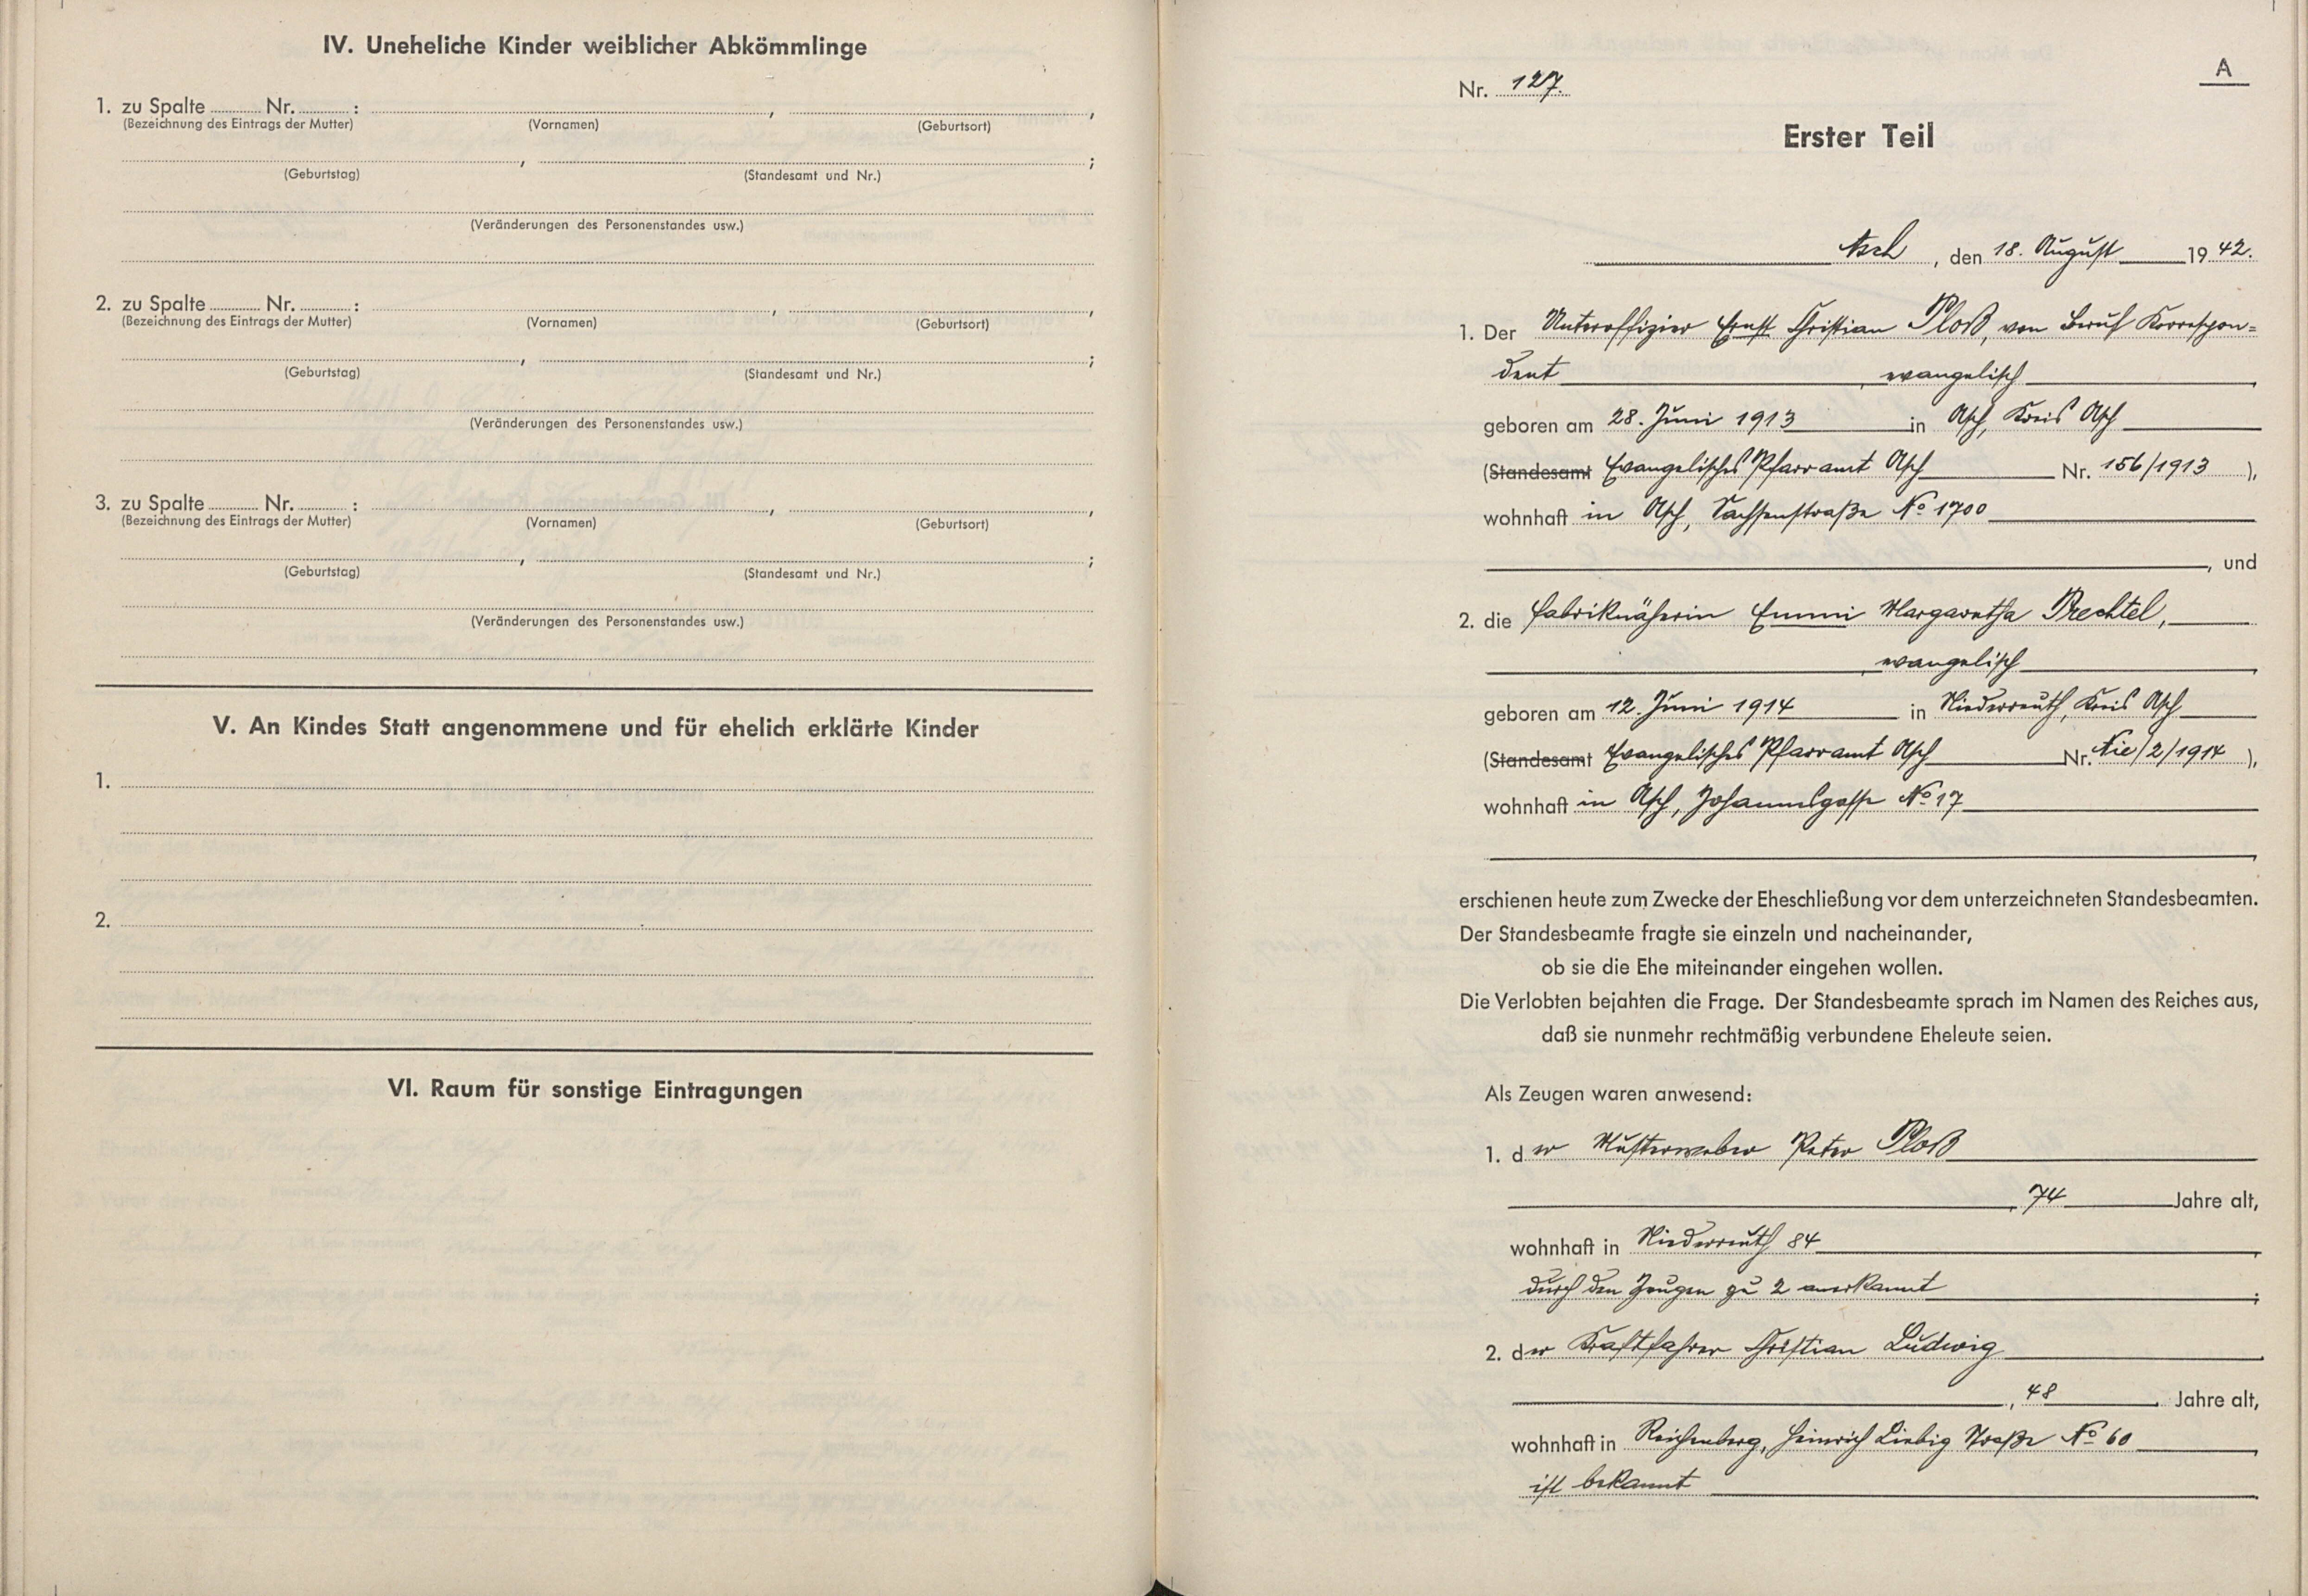 IV. Uneheliche Kinder weiblicher Abkömmlinge
1. zu Spalte ............ Nr. ............ : , ,
(Bezeichnung des Eintrags der Mutter) (Vornamen) (Geburtsort)
, ;
(Geburtstag) (Standesamt und Nr.)
(Veränderungen des Personenstandes usw.)
2. zu Spalte ............ Nr. ............ : , ,
(Bezeichnung des Eintrags der Mutter) (Vornamen) (Geburtsort)
, ;
(Geburtstag) (Standesamt und Nr.)
(Veränderungen des Personenstandes usw.)
3. zu Spalte ............ Nr. ............ : , ,
(Bezeichnung des Eintrags der Mutter) (Vornamen) (Geburtsort)
, ;
(Geburtstag) (Standesamt und Nr.)
(Veränderungen des Personenstandes usw.)
V. An Kindes Statt angenommene und für ehelich erklärte Kinder
1.
2.
VI. Raum für sonstige Eintragungen
A
Nr. 127.
Erster Teil
Asch, den 18. August 1942.
1. Der Unteroffizier Ernst Christian Ploß, von Beruf Korrespon=
dent, evangelisch,
geboren am 28. Juni 1913 in Asch, Kreis Asch
(Standesamt Evangelisches Pfarramt Asch Nr. 156/1913),
wohnhaft in Asch, Sachsenstraße No 1700
, und
2. die Fabriknäherin Emmi Margaretha Prechtel,
, evangelisch,
geboren am 12. Juni 1914 in Niederreuth, Kreis Asch
(Standesamt Evangelisches Pfarramt Asch Nr. Nie/2/1914),
wohnhaft in Asch, Johannesgasse No 17
,
erschienen heute zum Zwecke der Eheschließung vor dem unterzeichneten Standesbeamten.
Der Standesbeamte fragte sie einzeln und nacheinander,
ob sie die Ehe miteinander eingehen wollen.
Die Verlobten bejahten die Frage. Der Standesbeamte sprach im Namen des Reiches aus,
daß sie nunmehr rechtmäßig verbundene Eheleute seien.
Als Zeugen waren anwesend:
1. der Musterweber Peter Ploß
, 74 Jahre alt,
wohnhaft in Niederreuth 84,
durch den Zeugen zu 2 anerkannt;
2. der Kraftfahrer Christian Ludwig
, 48 Jahre alt,
wohnhaft in Reichenberg, Heinrich Liebig Straße No 60,
ist bekannt